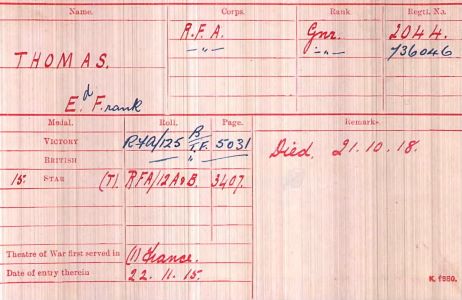 Name. Corps. Rank Regtl. No.
R.F.A. Gnr. 2044.
-"- -"- 736046
THOMAS.
Ed Frank
Medal. Roll. Page. Remarks.
VICTORY RFA/125 B/T.F. 5031
BRITISH — " —
Died. 21.10.18.
15 STAR (T) RFA/12A&B. 3407.
Theatre of War first served in (1) France.
Date of entry therein 22.11.15.
K. 1380.